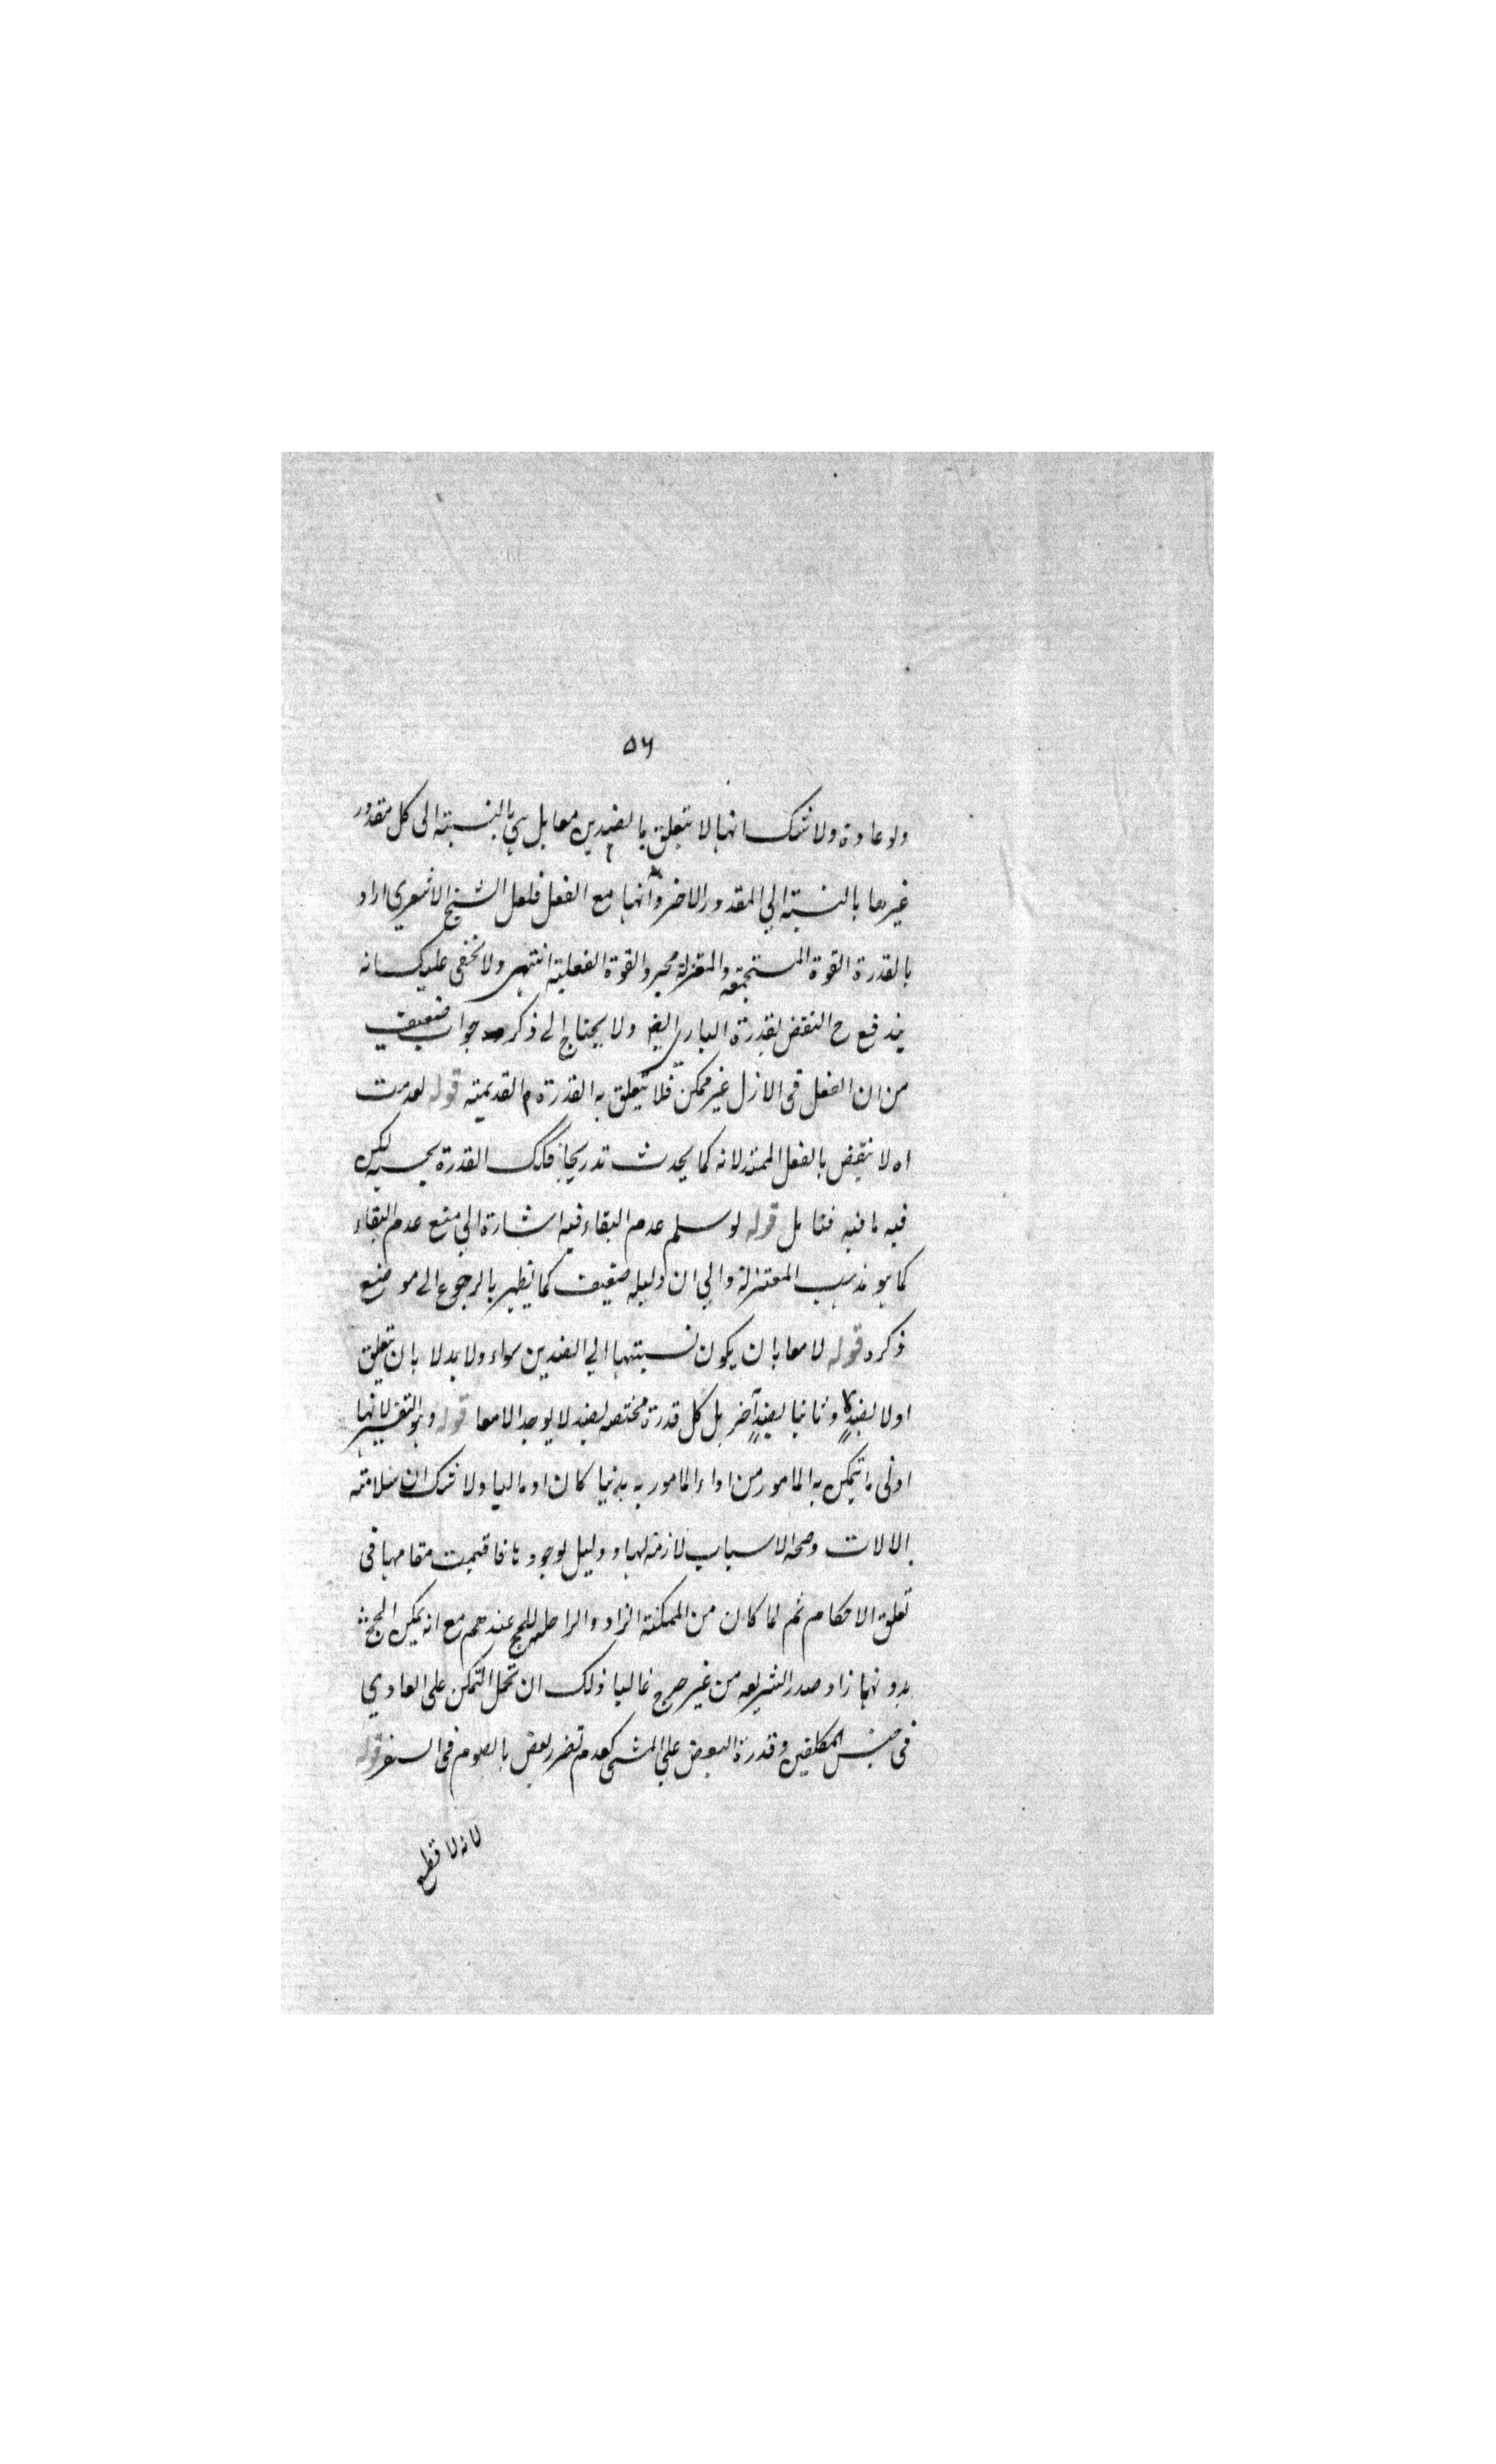 ٥٦
ولا عادة ولا شك انها لا تتعلق بالضدين معا بل هي بالنسبة الى كل مقدور
غيرها بالنسبة الي المقدور الاخر وانها مع الفعل فلعل الشيخ الاشعري اراد
بالقدرة القوة المستجمعة والمعتزلة مجرد القوة الفعلية انتهى ولا يخفى عليك انه
يندفع ح النقض بقدرة الباري ايضا ولا يحتاج الى ذكر جواب ضعيف
من ان الفعل فى الازل غير ممكن فلا يتعلق به القدرة القديمة قوله لعدمت
اه لا ينقض بالفعل الممتد لانه كما يحدث تدريجا فكك القدرة بحسبه لكن
فيه ما فيه فتامل قوله لو سلم عدم البقاء فيه اشارة الي منع عدم البقاء
كما هو مذهب المعتزلة والي ان دليله ضعيف كما يظهر بالرجوع الى موضع
ذكره قوله لا معا بان يكون نسبتها الي الضدين سواء ولا بدلا بان يتعلق
اولا بضد وثانيا بضد آخر بل كل قدرة مختصه بضد لا يوجد الا معا قوله وهو التفسير لانها
ادنى ما يتمكن به المامور من اداء المامور به بدنيا كان او ماليا ولا شك ان سلامته
الالات وصحة الاسباب لازمة لها ودليل لوجودها فاقيمت مقامها فى
تعلق الاحكام ثم لما كان من الممكنة الزاد والراحلة للحج عندهم مع انه يمكن الحج
بدونهما زاد صدر الشريعه من غير حرج غالبا ذلك ان تحمل التمكن على العادي
فى جنس المكلفين وقدرة البعض علي المشى كعدم تضرر بعض بالصوم فى السفر قوله
لانه لا قطع